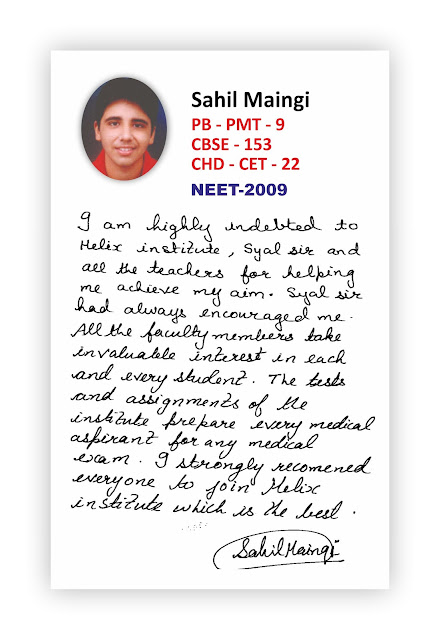 Sahil Maingi
PB - PMT - 9
CBSE - 153
CHD - CET - 22
NEET-2009
I am highly indebted to
Helix institute, Syal sir and
all the teachers for helping
me achieve my aim. Syal sir
had always encouraged me.
All the faculty members take
invaluable interest in each
and every student. The tests
and assignments of the
institute prepare every medical
aspirant for any medical
exam. I strongly recomened
everyone to join Helix
institute which is the best.
Sahil Maingi